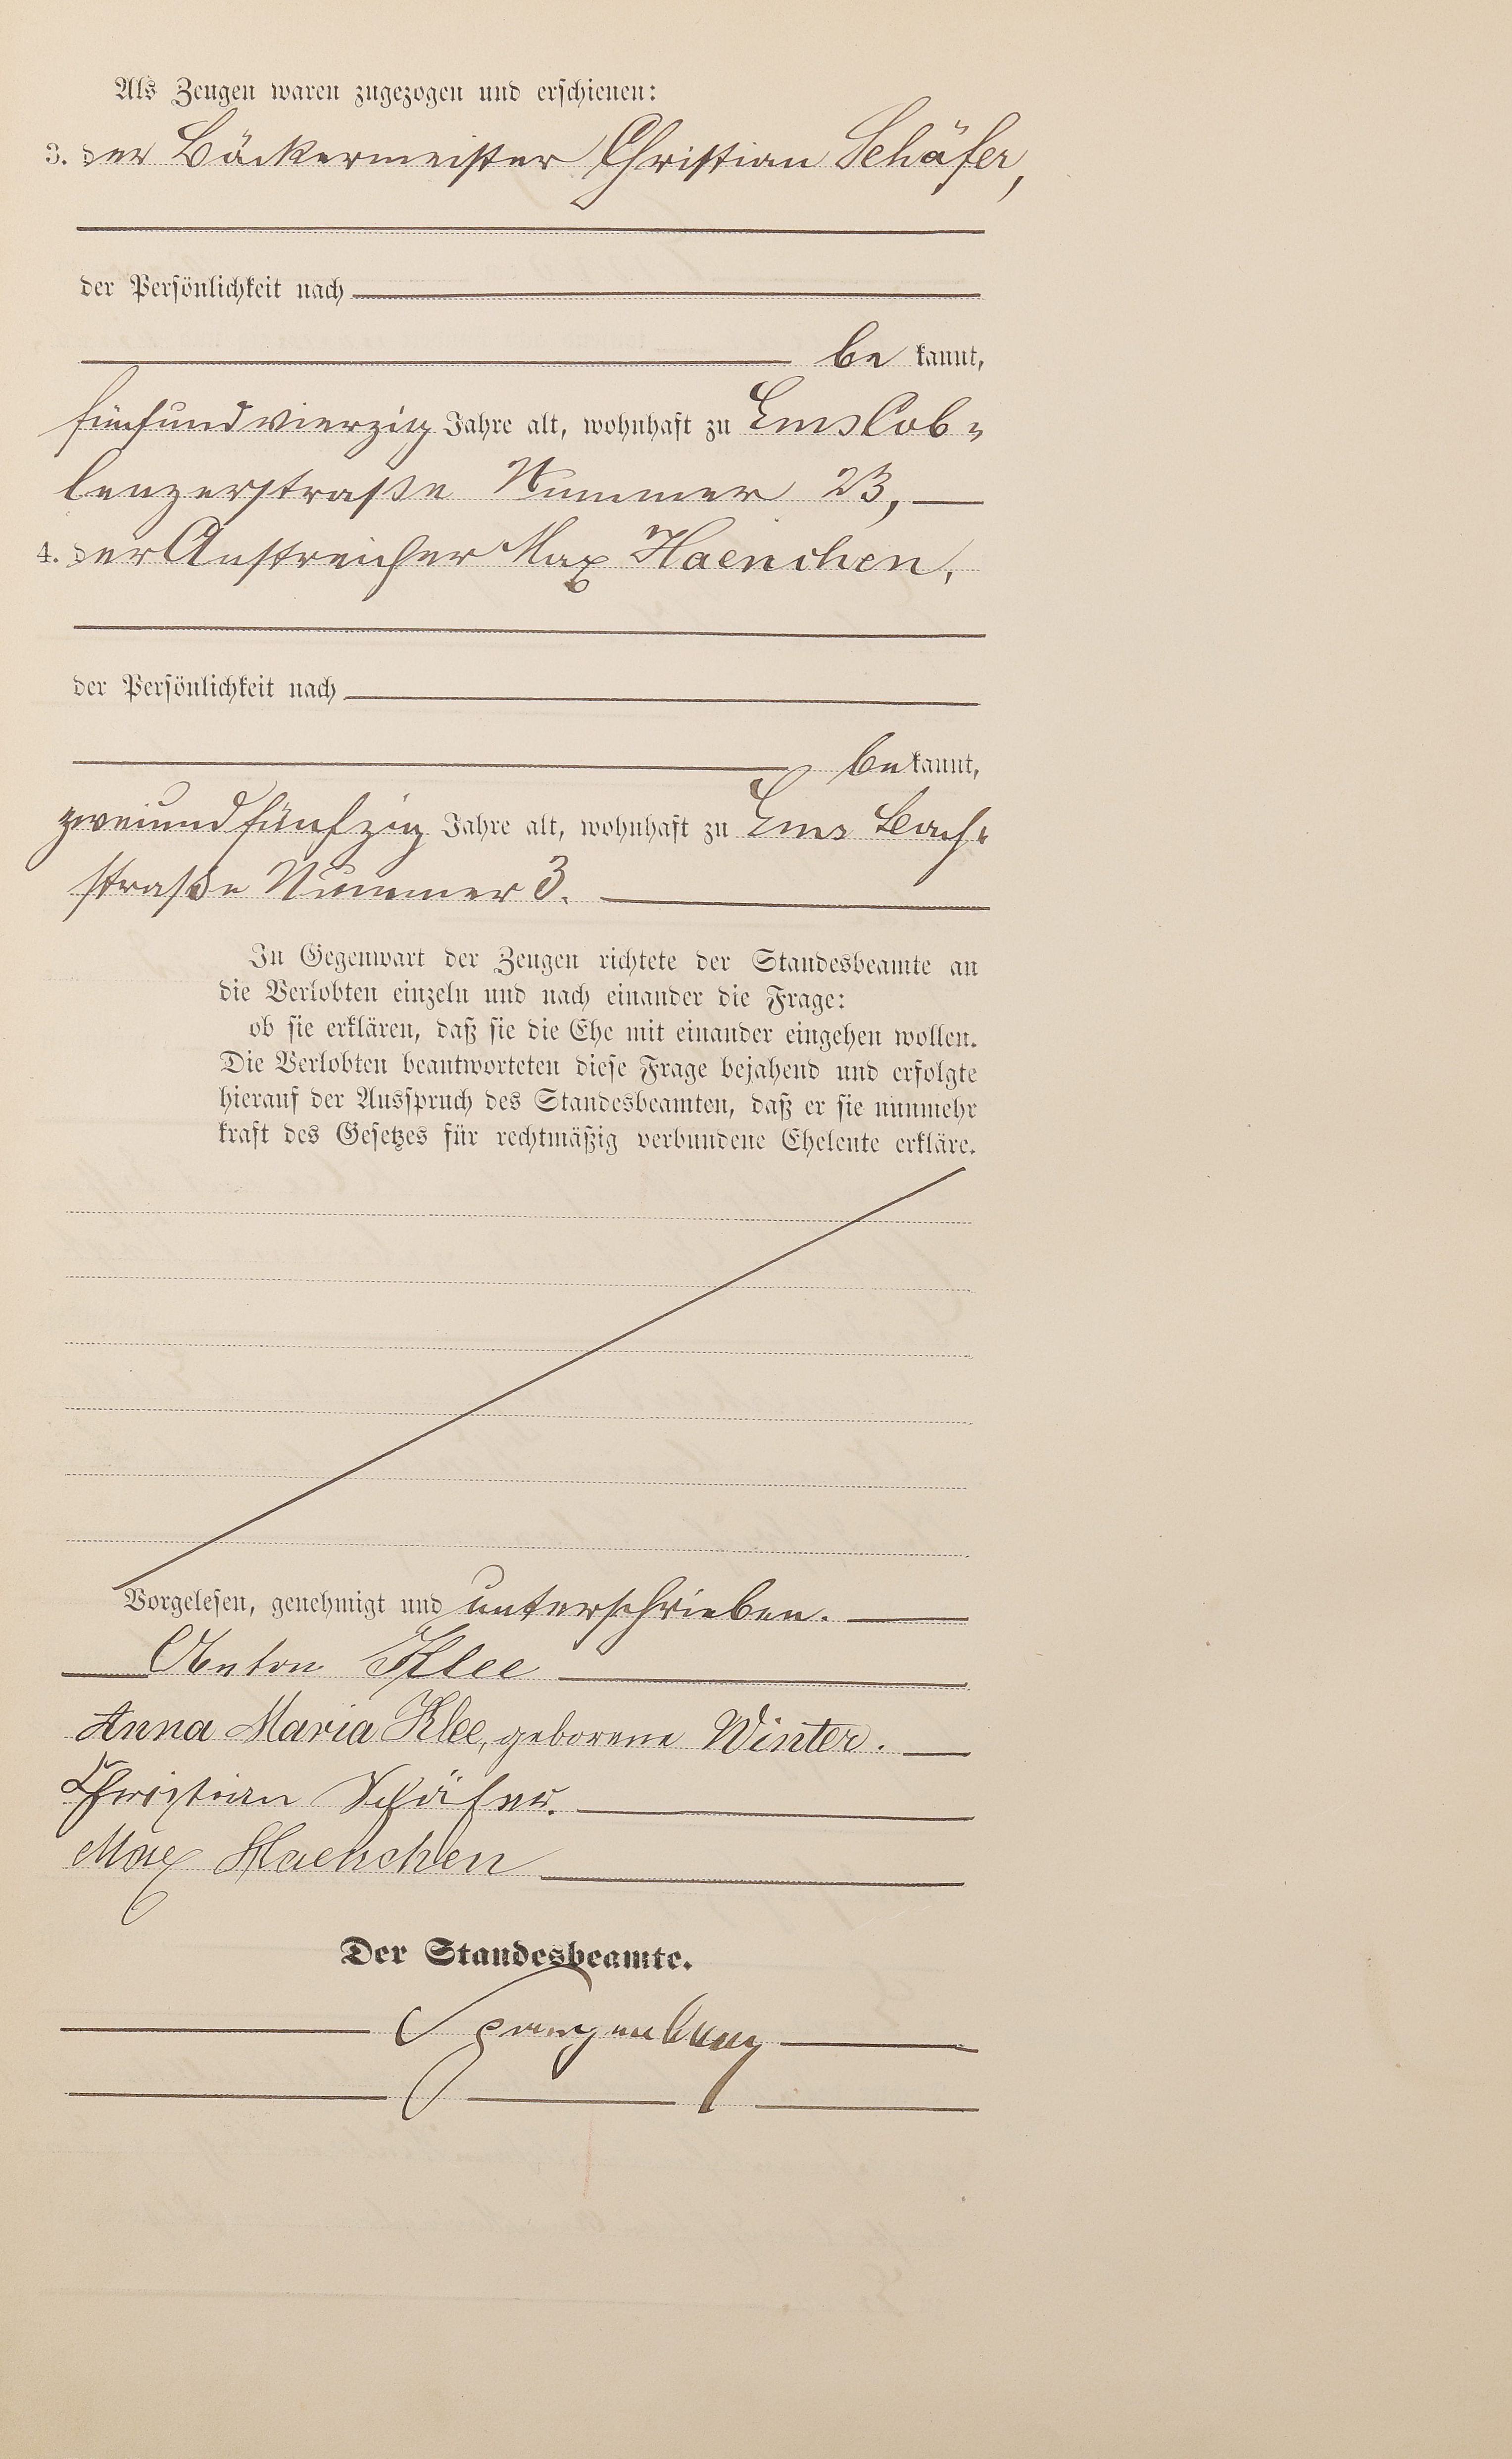 Als Zeugen waren zugezogen und erschienen:
3. der Bäckermeister Christian Schäfer,
der Persönlichkeit nach
be kannt,
fünfundvierzig Jahre alt, wohnhaft zu Ems Cob-
lenzerstraße Nummer 23,
4. der Anstreicher Max Haenchen,
der Persönlichkeit nach
be kannt,
zweiundfünfzig Jahre alt, wohnhaft zu Ems Bach-
straße Nummer 3.
In Gegenwart der Zeugen richtete der Standesbeamte an
die Verlobten einzeln und nach einander die Frage:
ob sie erklären, daß sie die Ehe mit einander eingehen wollen.
Die Verlobten beantworteten diese Frage bejahend und erfolgte
hierauf der Ausspruch des Standesbeamten, daß er sie nunmehr
kraft des Gesetzes für rechtmäßig verbundene Eheleute erkläre.
Vorgelesen, genehmigt und unterschrieben.
Anton Klee
Anna Maria Klee, geborene Winter.
Christian Schäfer.
Max Haenchen
Der Standesbeamte.
Spangenberg